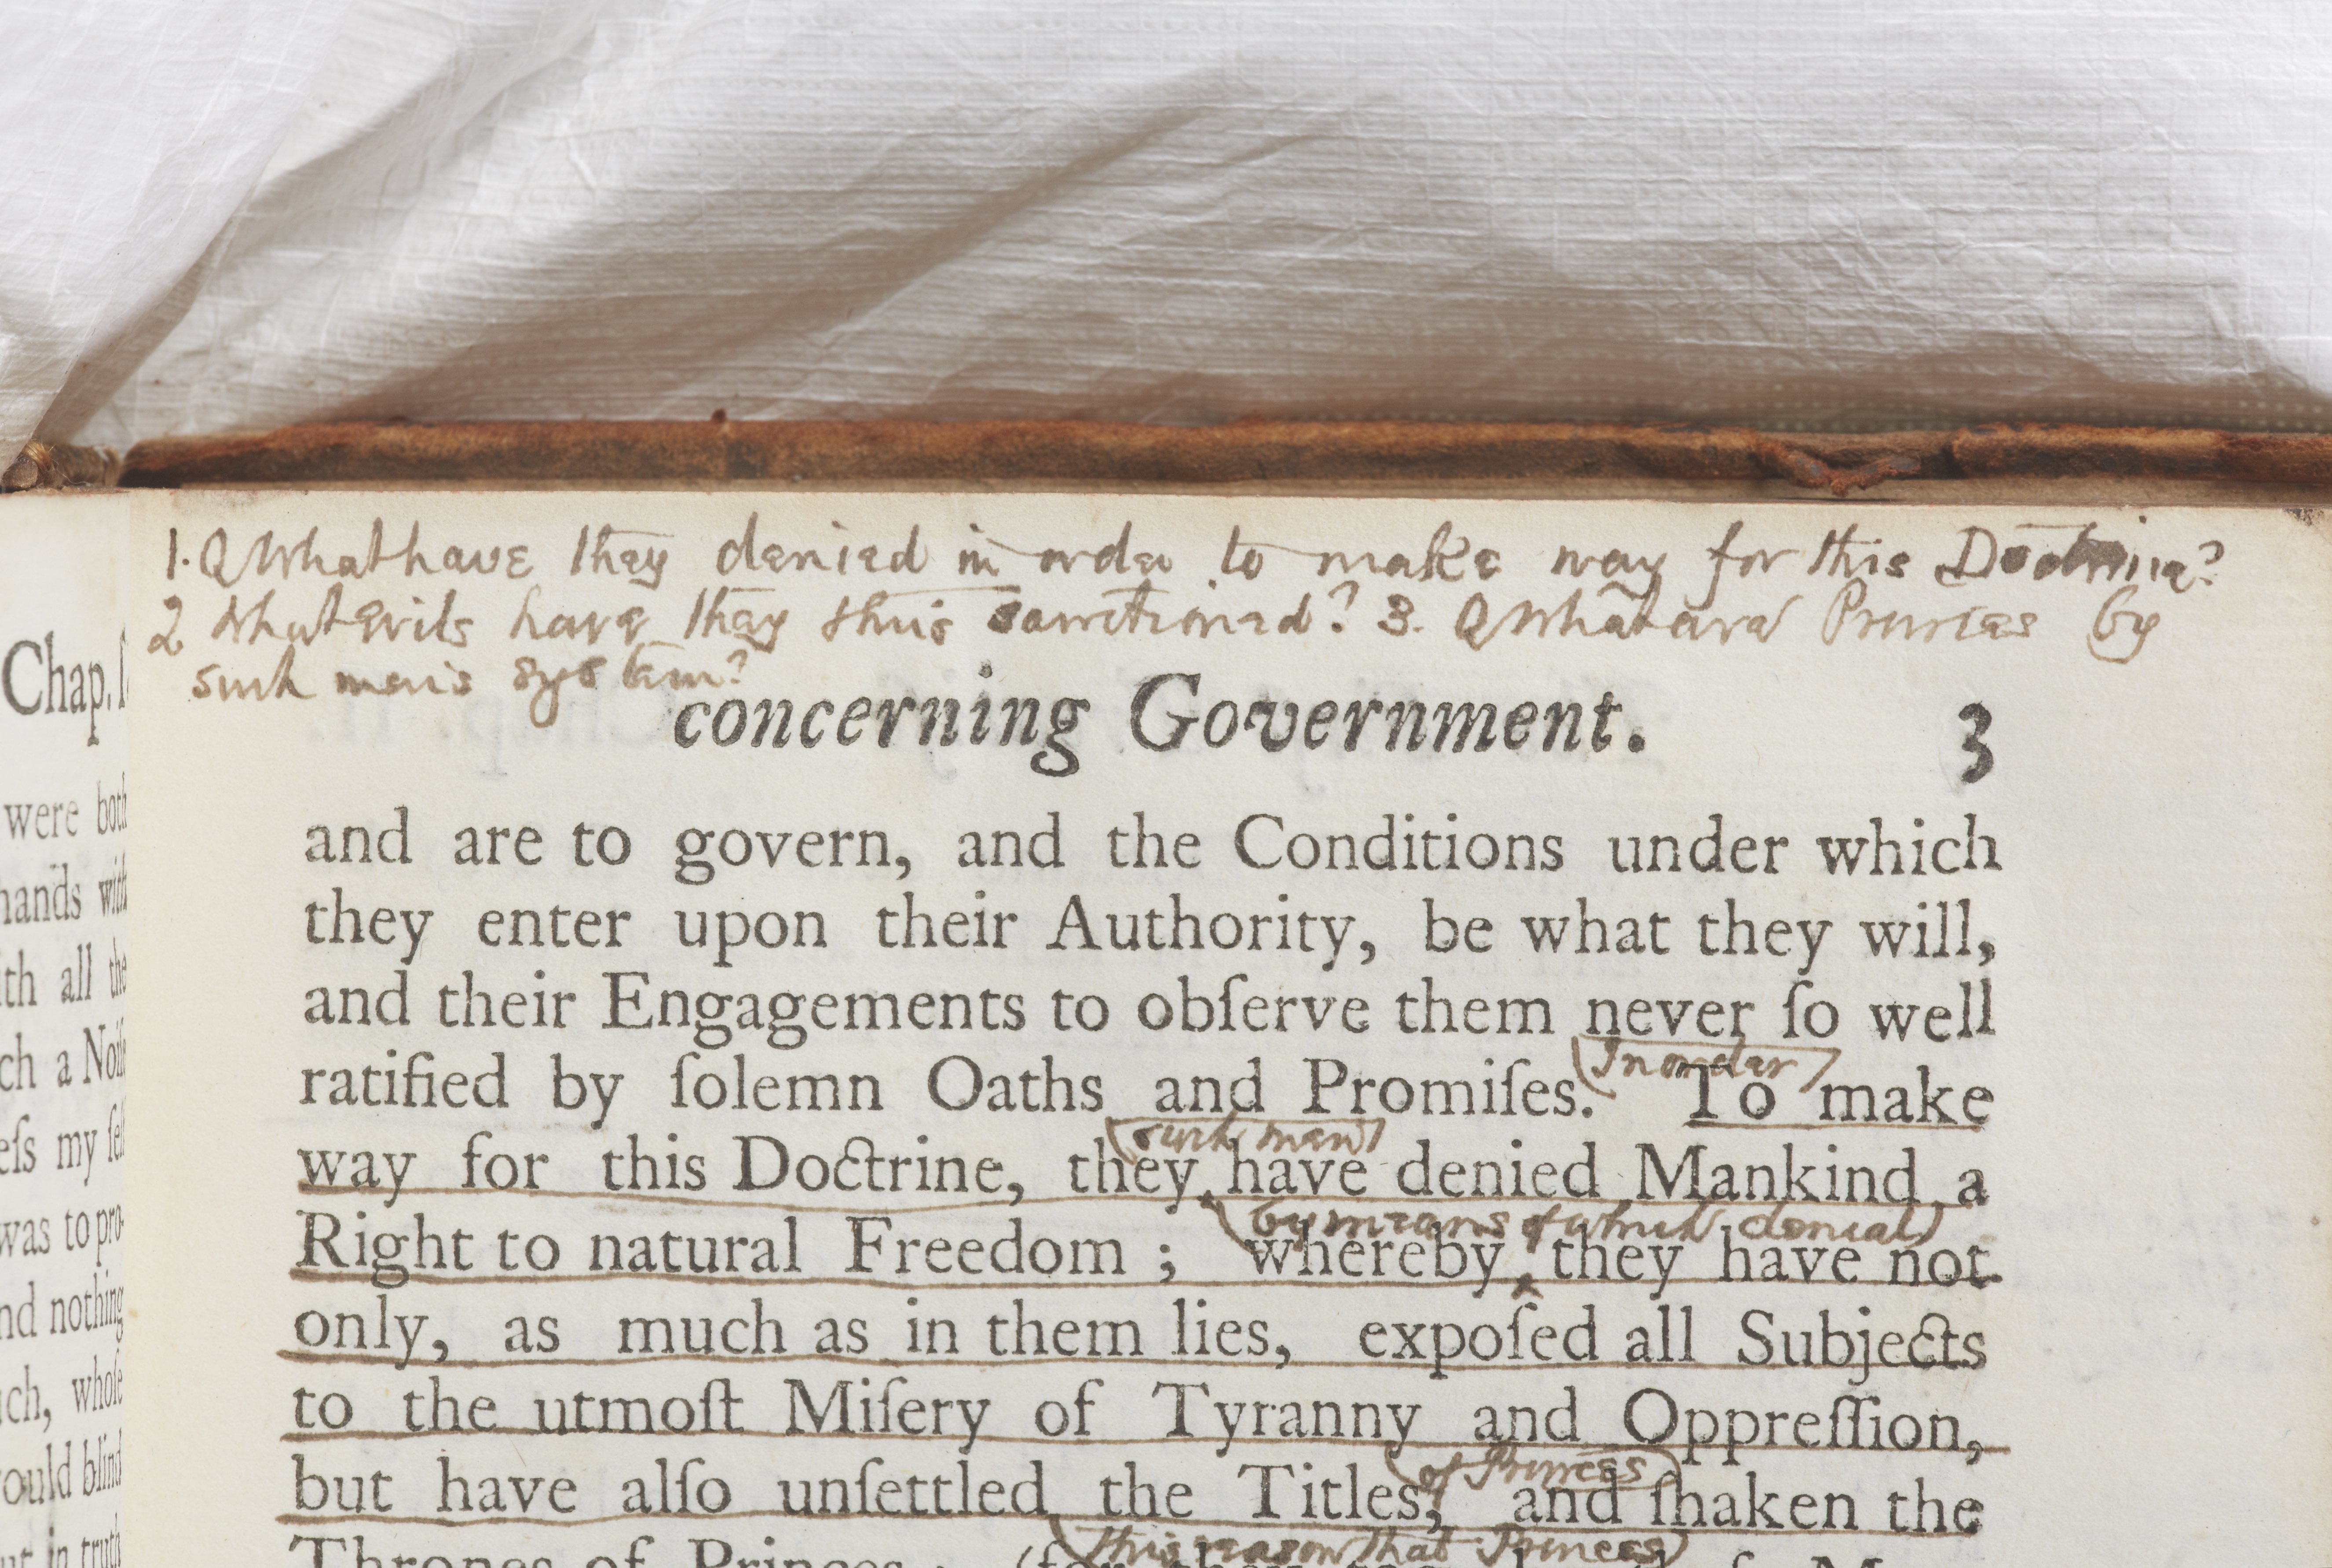 1. Q What have they denied in order to make way for this Doctrine?
2 What Evils have they thus sanctioned? 3. Q What are Princes by
such mens system?
concerning Government. 3
and are to govern, and the Conditions under which
they enter upon their Authority, be what they will,
and their Engagements to obſerve them never ſo well
(In order)
ratified by ſolemn Oaths and Promiſes. To make
(such men)
way for this Doctrine, they have denied Mankind a
(by means of which denial)
Right to natural Freedom ; whereby they have not
only, as much as in them lies, expoſed all Subjects
to the utmoſt Miſery of Tyranny and Oppreſſion,
(of Princes)
but have alſo unſettled the Titles, and ſhaken the
(this reason that Princes)
Thrones of Princes ; (for they
Chap.
were both
hands with
th all the
ch a Noiſe
eſs my ſelf
was to pro-
nd nothing
ch, whoſe
ould blind
in truth